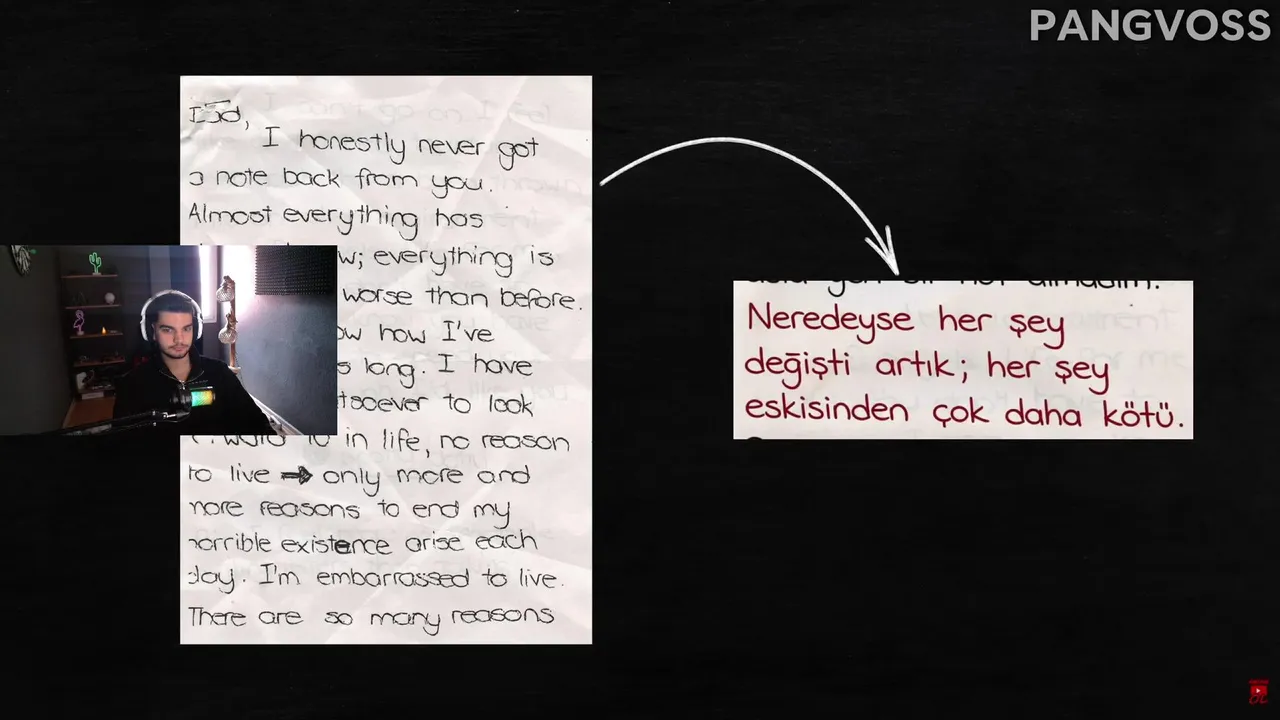 PANGVOSS
I honestly never got
a note back from you.
Almost everything has
everything is
worse than before.
how I've
long. I have
to look
in life, no reason
to live → only more and
more reasons to end my
horrible existence arise each
day. I'm embarrassed to live.
There are so many reasons
Neredeyse her şey
değişti artık; her şey
eskisinden çok daha kötü.